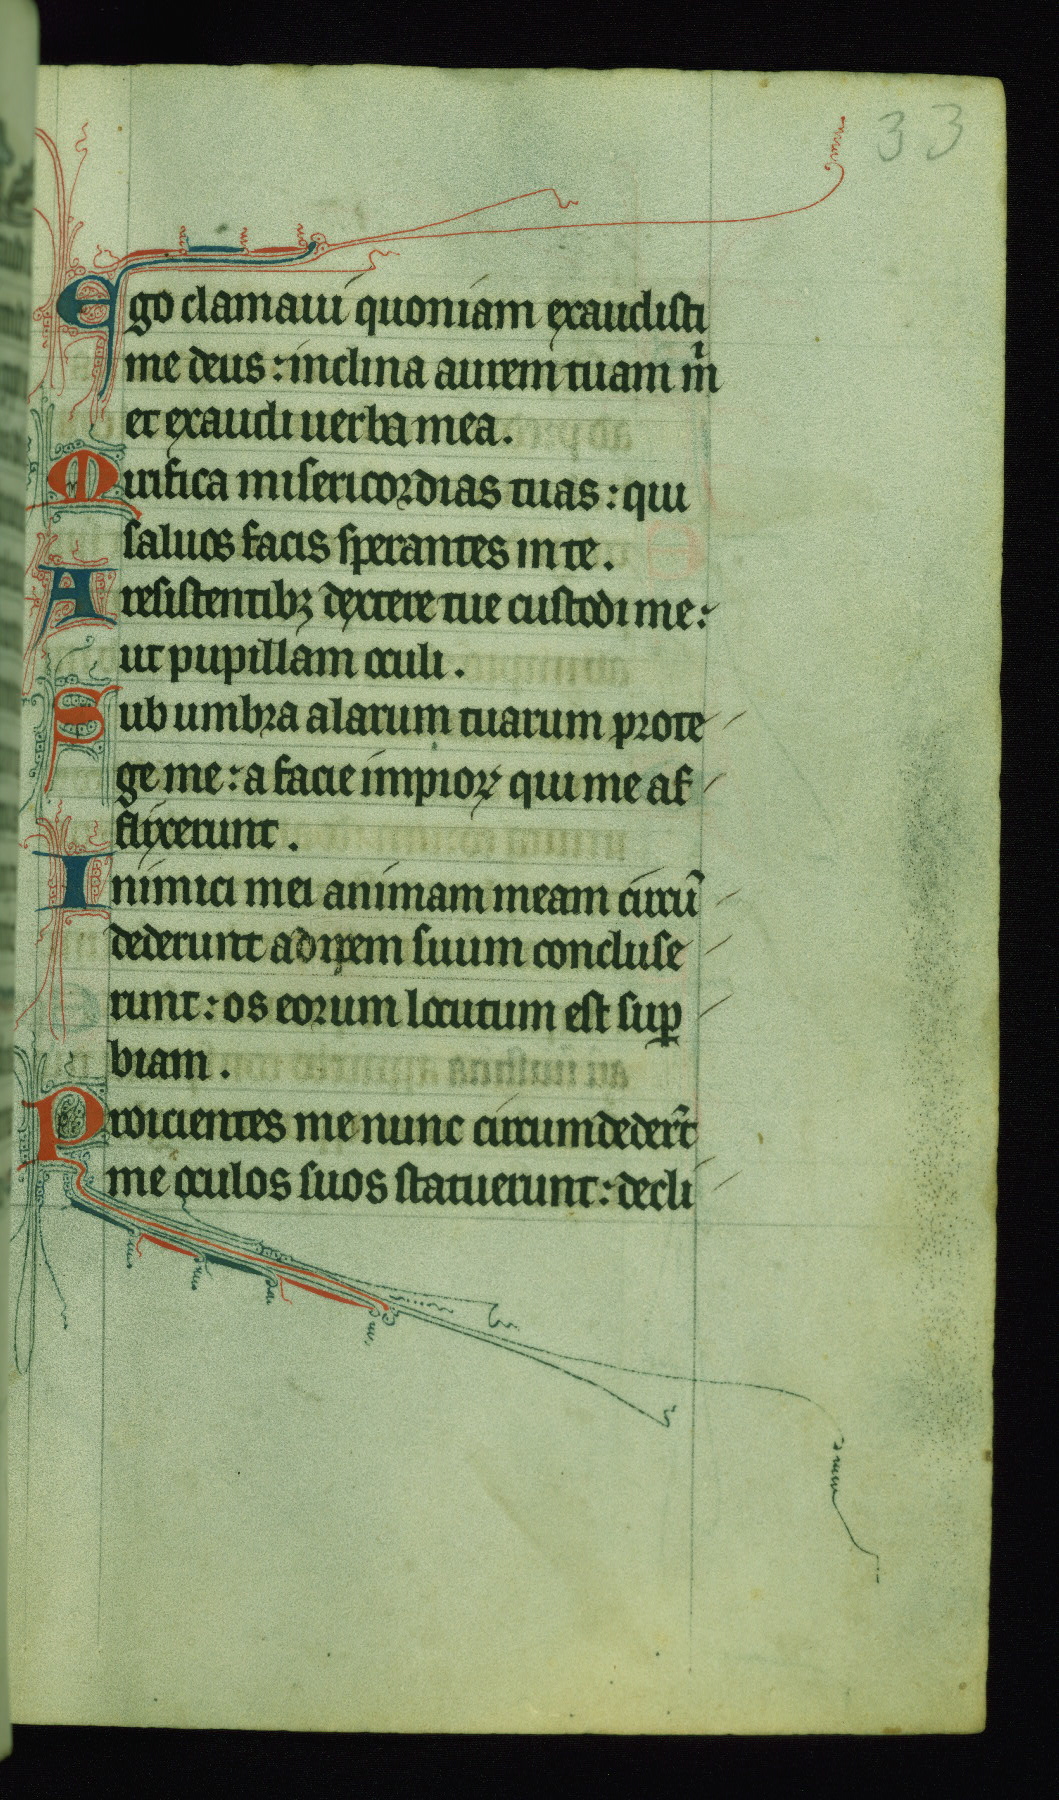 33
Ego clamaui quoniam exaudisti
me deus : inclina aurem tuam m̄
et exaudi uerba mea .
Mirifica misericordias tuas : qui
saluos facis sperantes in te .
A resistentibꝫ dextere tue custodi me :
ut pupillam oculi .
Sub umbra alarum tuarum prote
ge me : a facie impioꝝ qui me af
flixerunt .
Inimici mei animam meam circū
dederunt adipem suum concluse
runt : os eorum locutum est suꝑ
biam .
Proicientes me nunc circumdeder̄t
me oculos suos statuerunt : decli